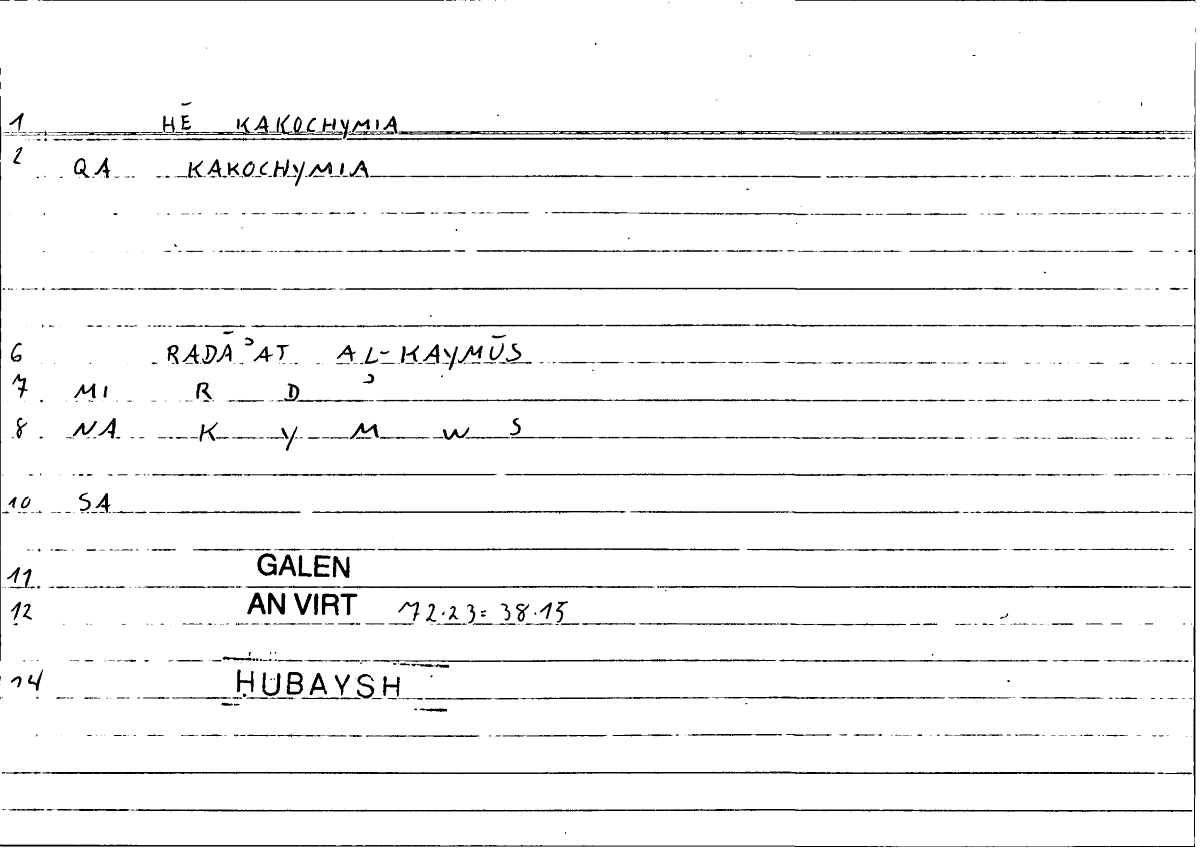 1 HĒ KAKOCHYMIA
2 QA KAKOCHYMIA
6 RADĀʾAT AL-KAYMŪS
7 MI R D ʾ
8 NA K Y M W S
10 SA
11 GALEN
12 AN VIRT 72.23=38.15
14 ḤUBAYSH